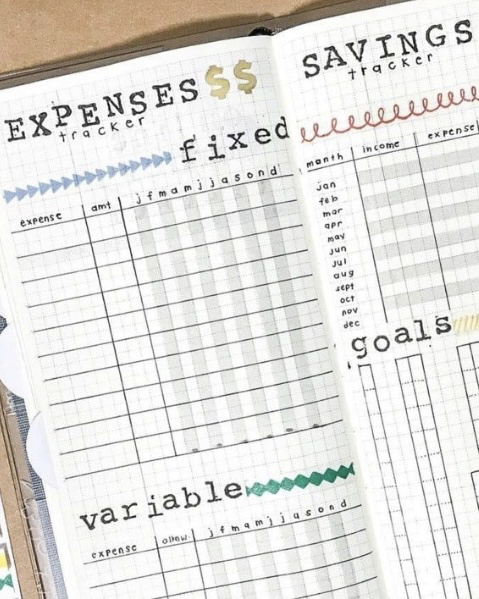 EXPENSES $$
tracker
fixed
expense amt j f m a m j j a s o n d
variable
expense allow. j f m a m j j a s o n d
SAVINGS
tracker
month income expense
jan
feb
mar
apr
may
jun
jul
aug
sept
oct
nov
dec
goals